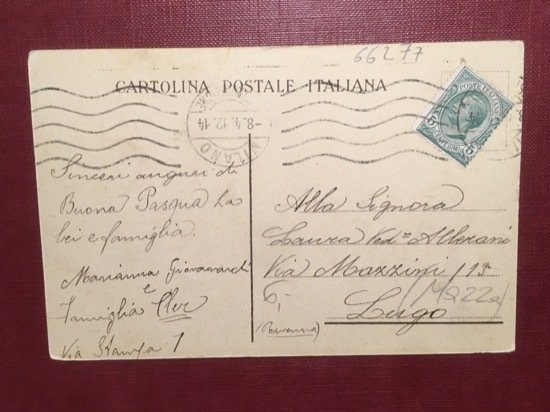 66277
CARTOLINA POSTALE ITALIANA
MILANO
-8.4.12.14
POSTE ITALIANE
5
Sinceri auguri di
Buona Pasqua La
lei e famiglia.
Marianna
e
famiglia
Via 7
Alla Signora
Laura Ved.ª
Via Mazzini / 13
(Mazza)
Lugo
(Ravenna)